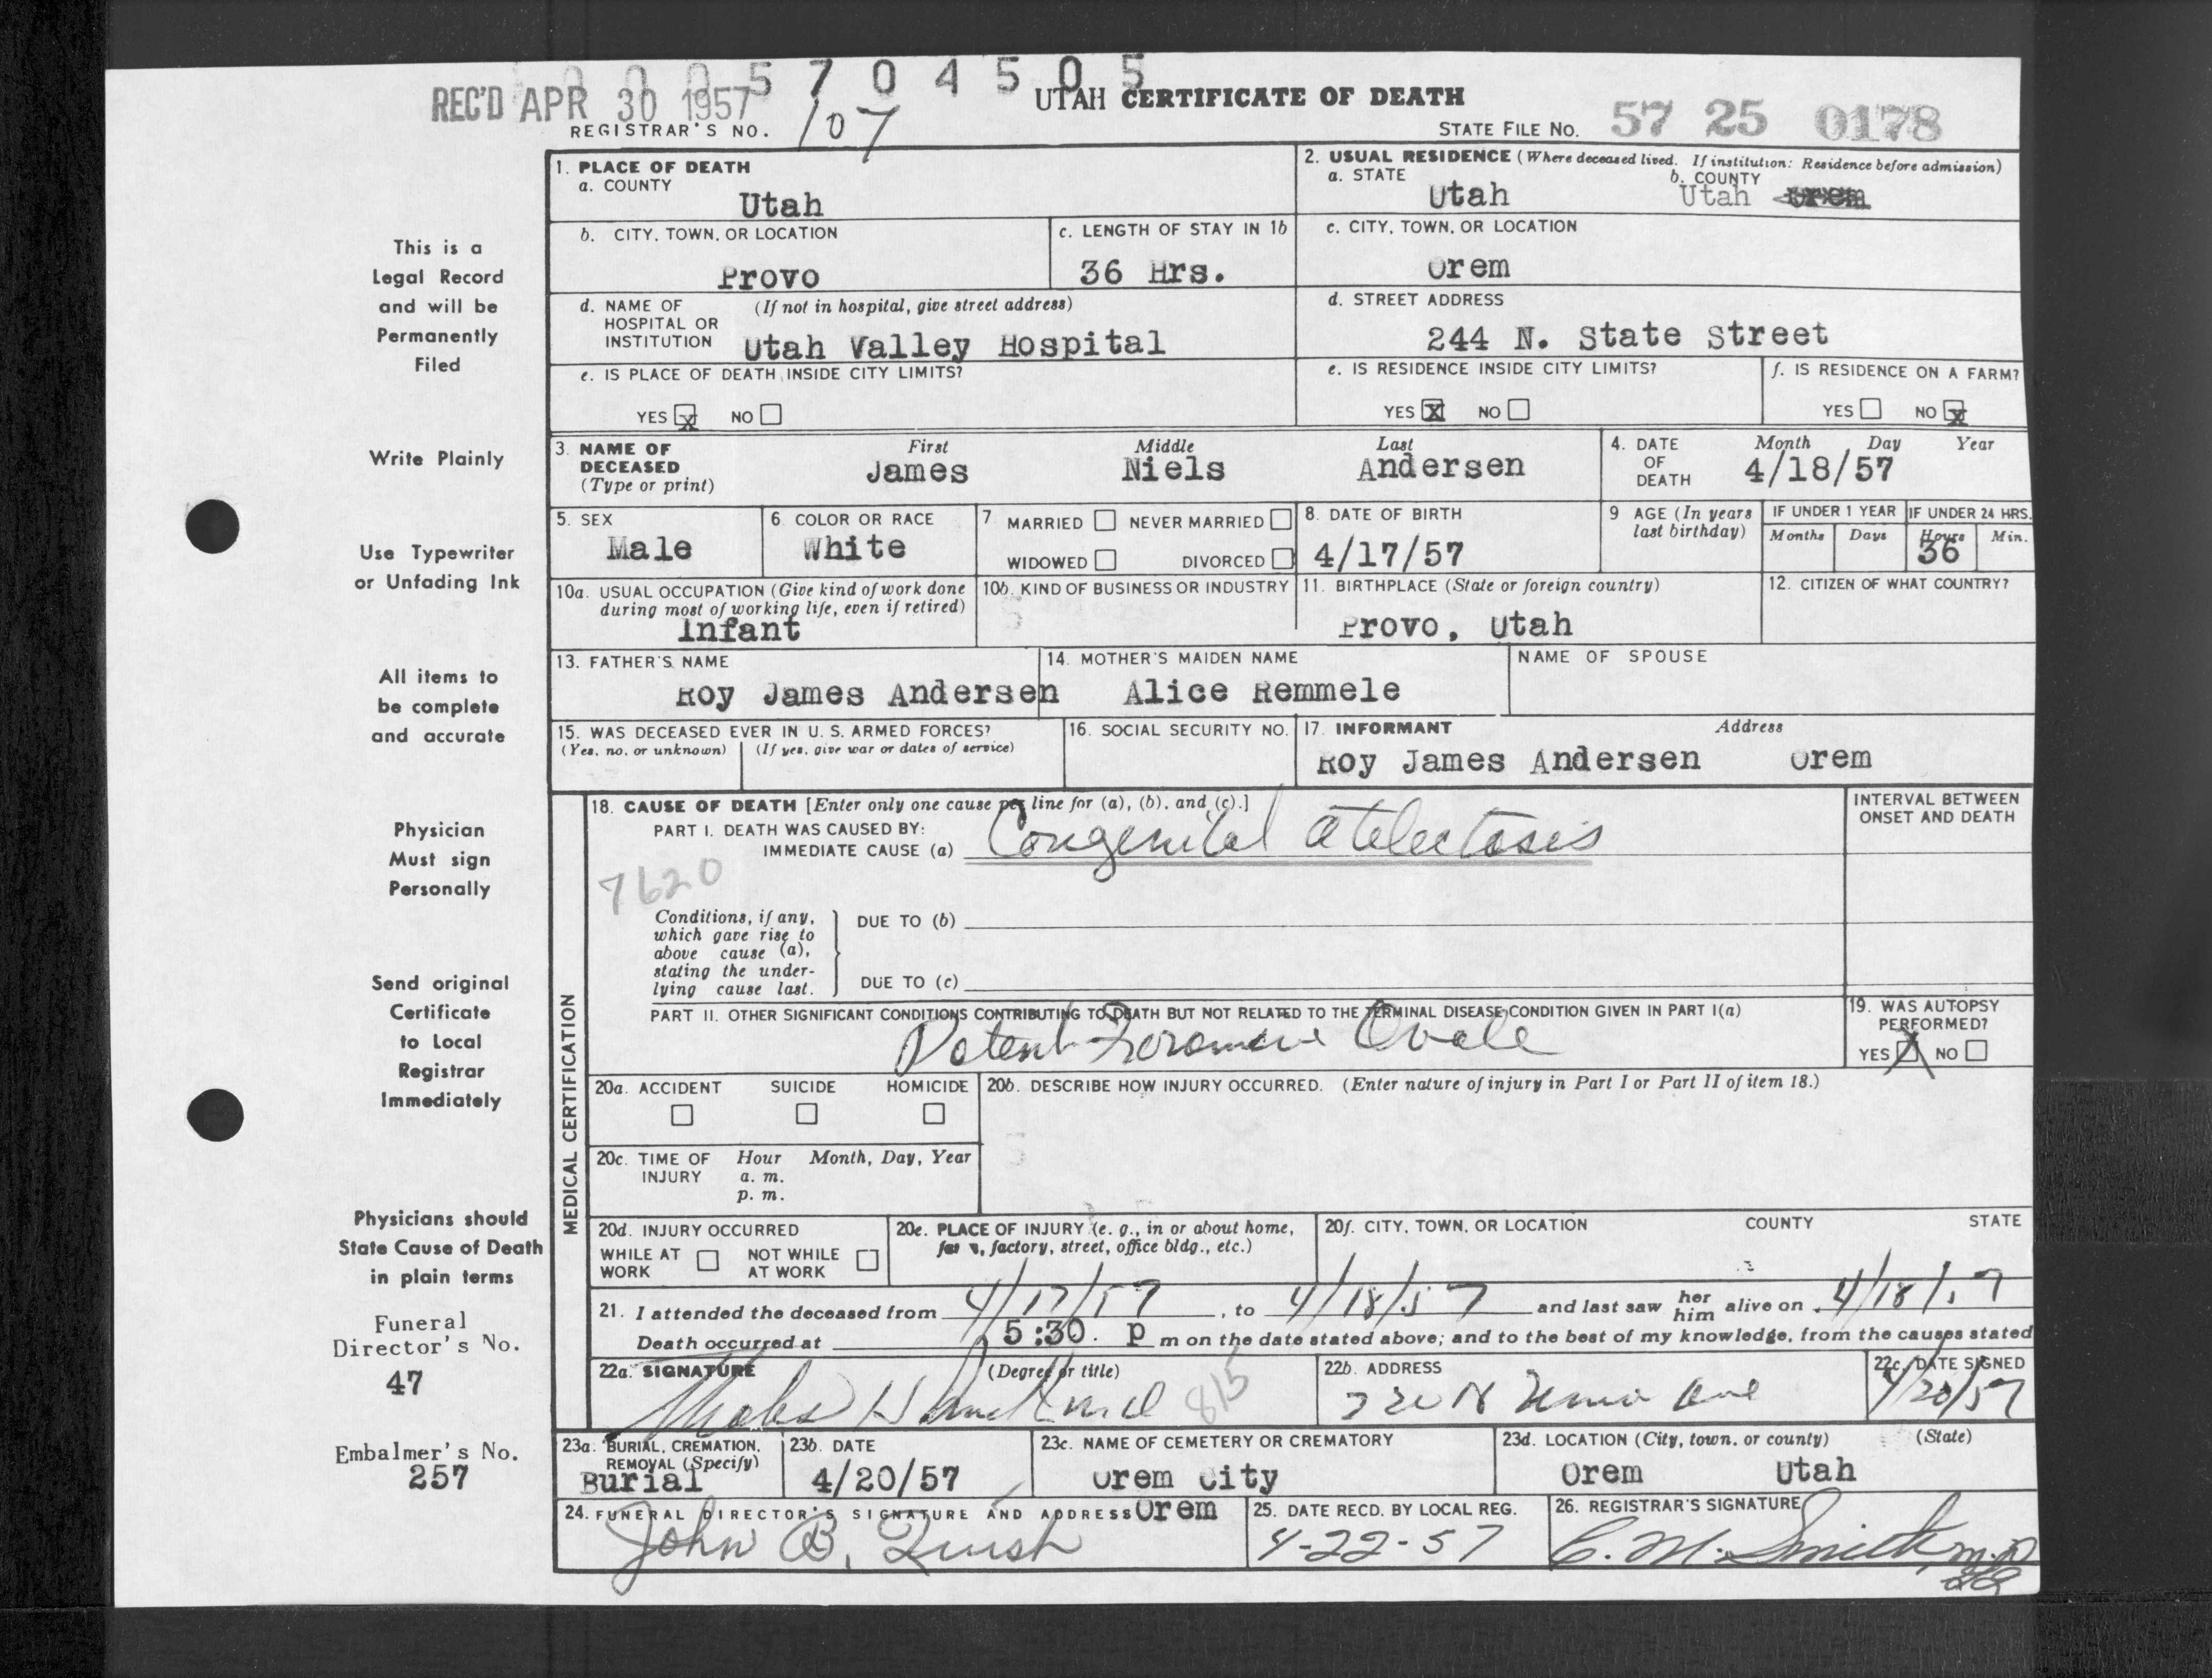 0 0 0 5 7 0 4 5 0 5
REC'D APR 30 1957
UTAH CERTIFICATE OF DEATH
REGISTRAR'S NO. 107
STATE FILE NO. 57 25 0178
This is a
Legal Record
and will be
Permanently
Filed
Write Plainly
Use Typewriter
or Unfading Ink
All items to
be complete
and accurate
Physician
Must sign
Personally
Send original
Certificate
to Local
Registrar
Immediately
Physicians should
State Cause of Death
in plain terms
Funeral
Director's No.
47
Embalmer's No.
257
1. PLACE OF DEATH
a. COUNTY
Utah
2. USUAL RESIDENCE (Where deceased lived. If institution: Residence before admission)
a. STATE
Utah
b. COUNTY
Utah Orem
b. CITY, TOWN, OR LOCATION
Provo
c. LENGTH OF STAY IN 1b
36 Hrs.
c. CITY, TOWN, OR LOCATION
Orem
d. NAME OF HOSPITAL OR INSTITUTION (If not in hospital, give street address)
Utah Valley Hospital
d. STREET ADDRESS
244 N. State Street
e. IS PLACE OF DEATH INSIDE CITY LIMITS?
YES X NO
e. IS RESIDENCE INSIDE CITY LIMITS?
YES X NO
f. IS RESIDENCE ON A FARM?
YES NO X
3. NAME OF DECEASED (Type or print)
First Middle Last
James Niels Andersen
4. DATE OF DEATH
Month Day Year
4/18/57
5. SEX
Male
6. COLOR OR RACE
White
7 MARRIED NEVER MARRIED
WIDOWED DIVORCED
8. DATE OF BIRTH
4/17/57
9 AGE (In years last birthday)
IF UNDER 1 YEAR
Months Days
IF UNDER 24 HRS.
Hours Min.
36
10a. USUAL OCCUPATION (Give kind of work done during most of working life, even if retired)
Infant
10b. KIND OF BUSINESS OR INDUSTRY
11. BIRTHPLACE (State or foreign country)
Provo, Utah
12. CITIZEN OF WHAT COUNTRY?
13. FATHER'S NAME
Roy James Andersen
14. MOTHER'S MAIDEN NAME
Alice Remmele
NAME OF SPOUSE
15. WAS DECEASED EVER IN U. S. ARMED FORCES?
(Yes, no, or unknown) (If yes, give war or dates of service)
16. SOCIAL SECURITY NO.
17. INFORMANT Address
Roy James Andersen Orem
MEDICAL CERTIFICATION
18. CAUSE OF DEATH [Enter only one cause per line for (a), (b), and (c).]
PART I. DEATH WAS CAUSED BY:
IMMEDIATE CAUSE (a) Congenital atelectasis
INTERVAL BETWEEN ONSET AND DEATH
7620
Conditions, if any, which gave rise to above cause (a), stating the underlying cause last.
DUE TO (b)
DUE TO (c)
PART II. OTHER SIGNIFICANT CONDITIONS CONTRIBUTING TO DEATH BUT NOT RELATED TO THE TERMINAL DISEASE CONDITION GIVEN IN PART I(a)
Patent Foramen Ovale
19. WAS AUTOPSY PERFORMED?
YES X NO
20a. ACCIDENT SUICIDE HOMICIDE
20b. DESCRIBE HOW INJURY OCCURRED. (Enter nature of injury in Part I or Part II of item 18.)
20c. TIME OF INJURY Hour Month, Day, Year
a. m.
p. m.
20d. INJURY OCCURRED
WHILE AT WORK NOT WHILE AT WORK
20e. PLACE OF INJURY (e. g., in or about home, farm, factory, street, office bldg., etc.)
20f. CITY, TOWN, OR LOCATION COUNTY STATE
21. I attended the deceased from 4/17/57, to 4/18/57 and last saw her him alive on 4/18/57
Death occurred at 5:30. p m on the date stated above; and to the best of my knowledge, from the causes stated
22a. SIGNATURE (Degree or title)
815
22b. ADDRESS
22c. DATE SIGNED
4/20/57
23a. BURIAL, CREMATION, REMOVAL (Specify)
Burial
23b. DATE
4/20/57
23c. NAME OF CEMETERY OR CREMATORY
Orem City
23d. LOCATION (City, town, or county) (State)
Orem Utah
24. FUNERAL DIRECTOR'S SIGNATURE AND ADDRESS Orem
John B.
25. DATE RECD. BY LOCAL REG.
4-22-57
26. REGISTRAR'S SIGNATURE
C. M. Smith M.D.